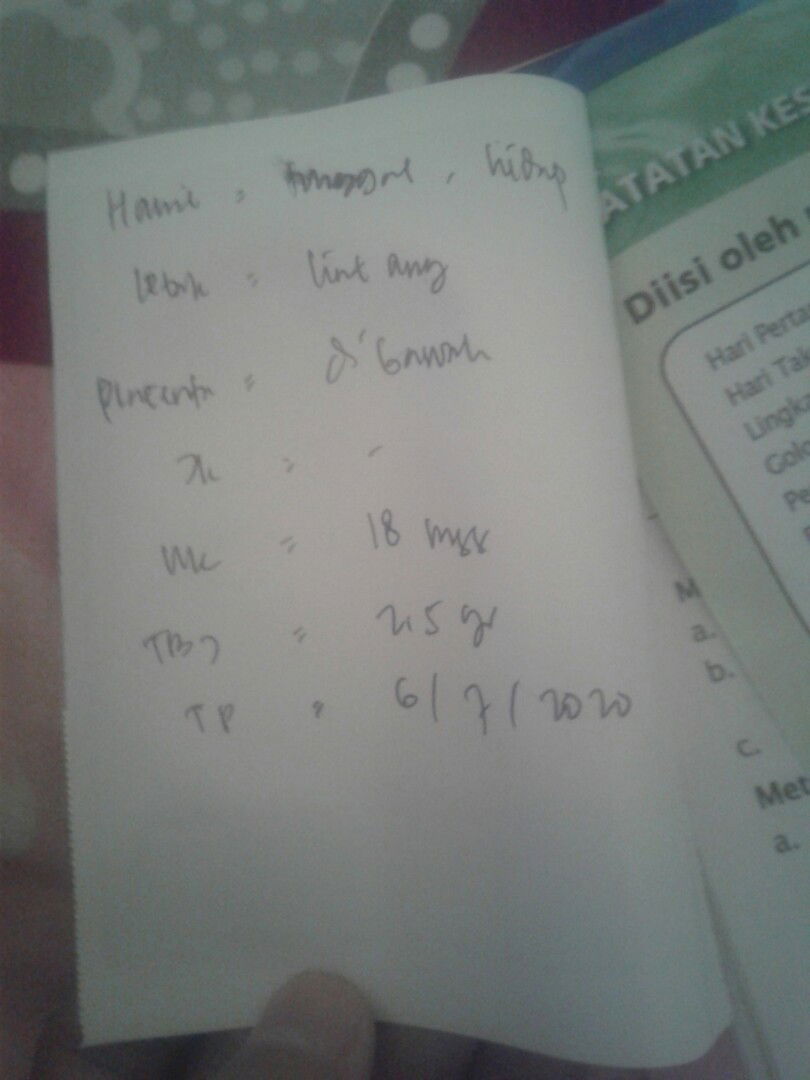 Hamil = tunggal, hidup
letak = lintang
plncenta = di bawah
JK = -
UK = 18 mgg
TBJ = 215 gr
TP = 6/7/2020
ATATAN KES
Diisi oleh
Hari Perta
Hari Tak
Lingka
Golo
Pe
M
a.
b.
c.
Met
a.